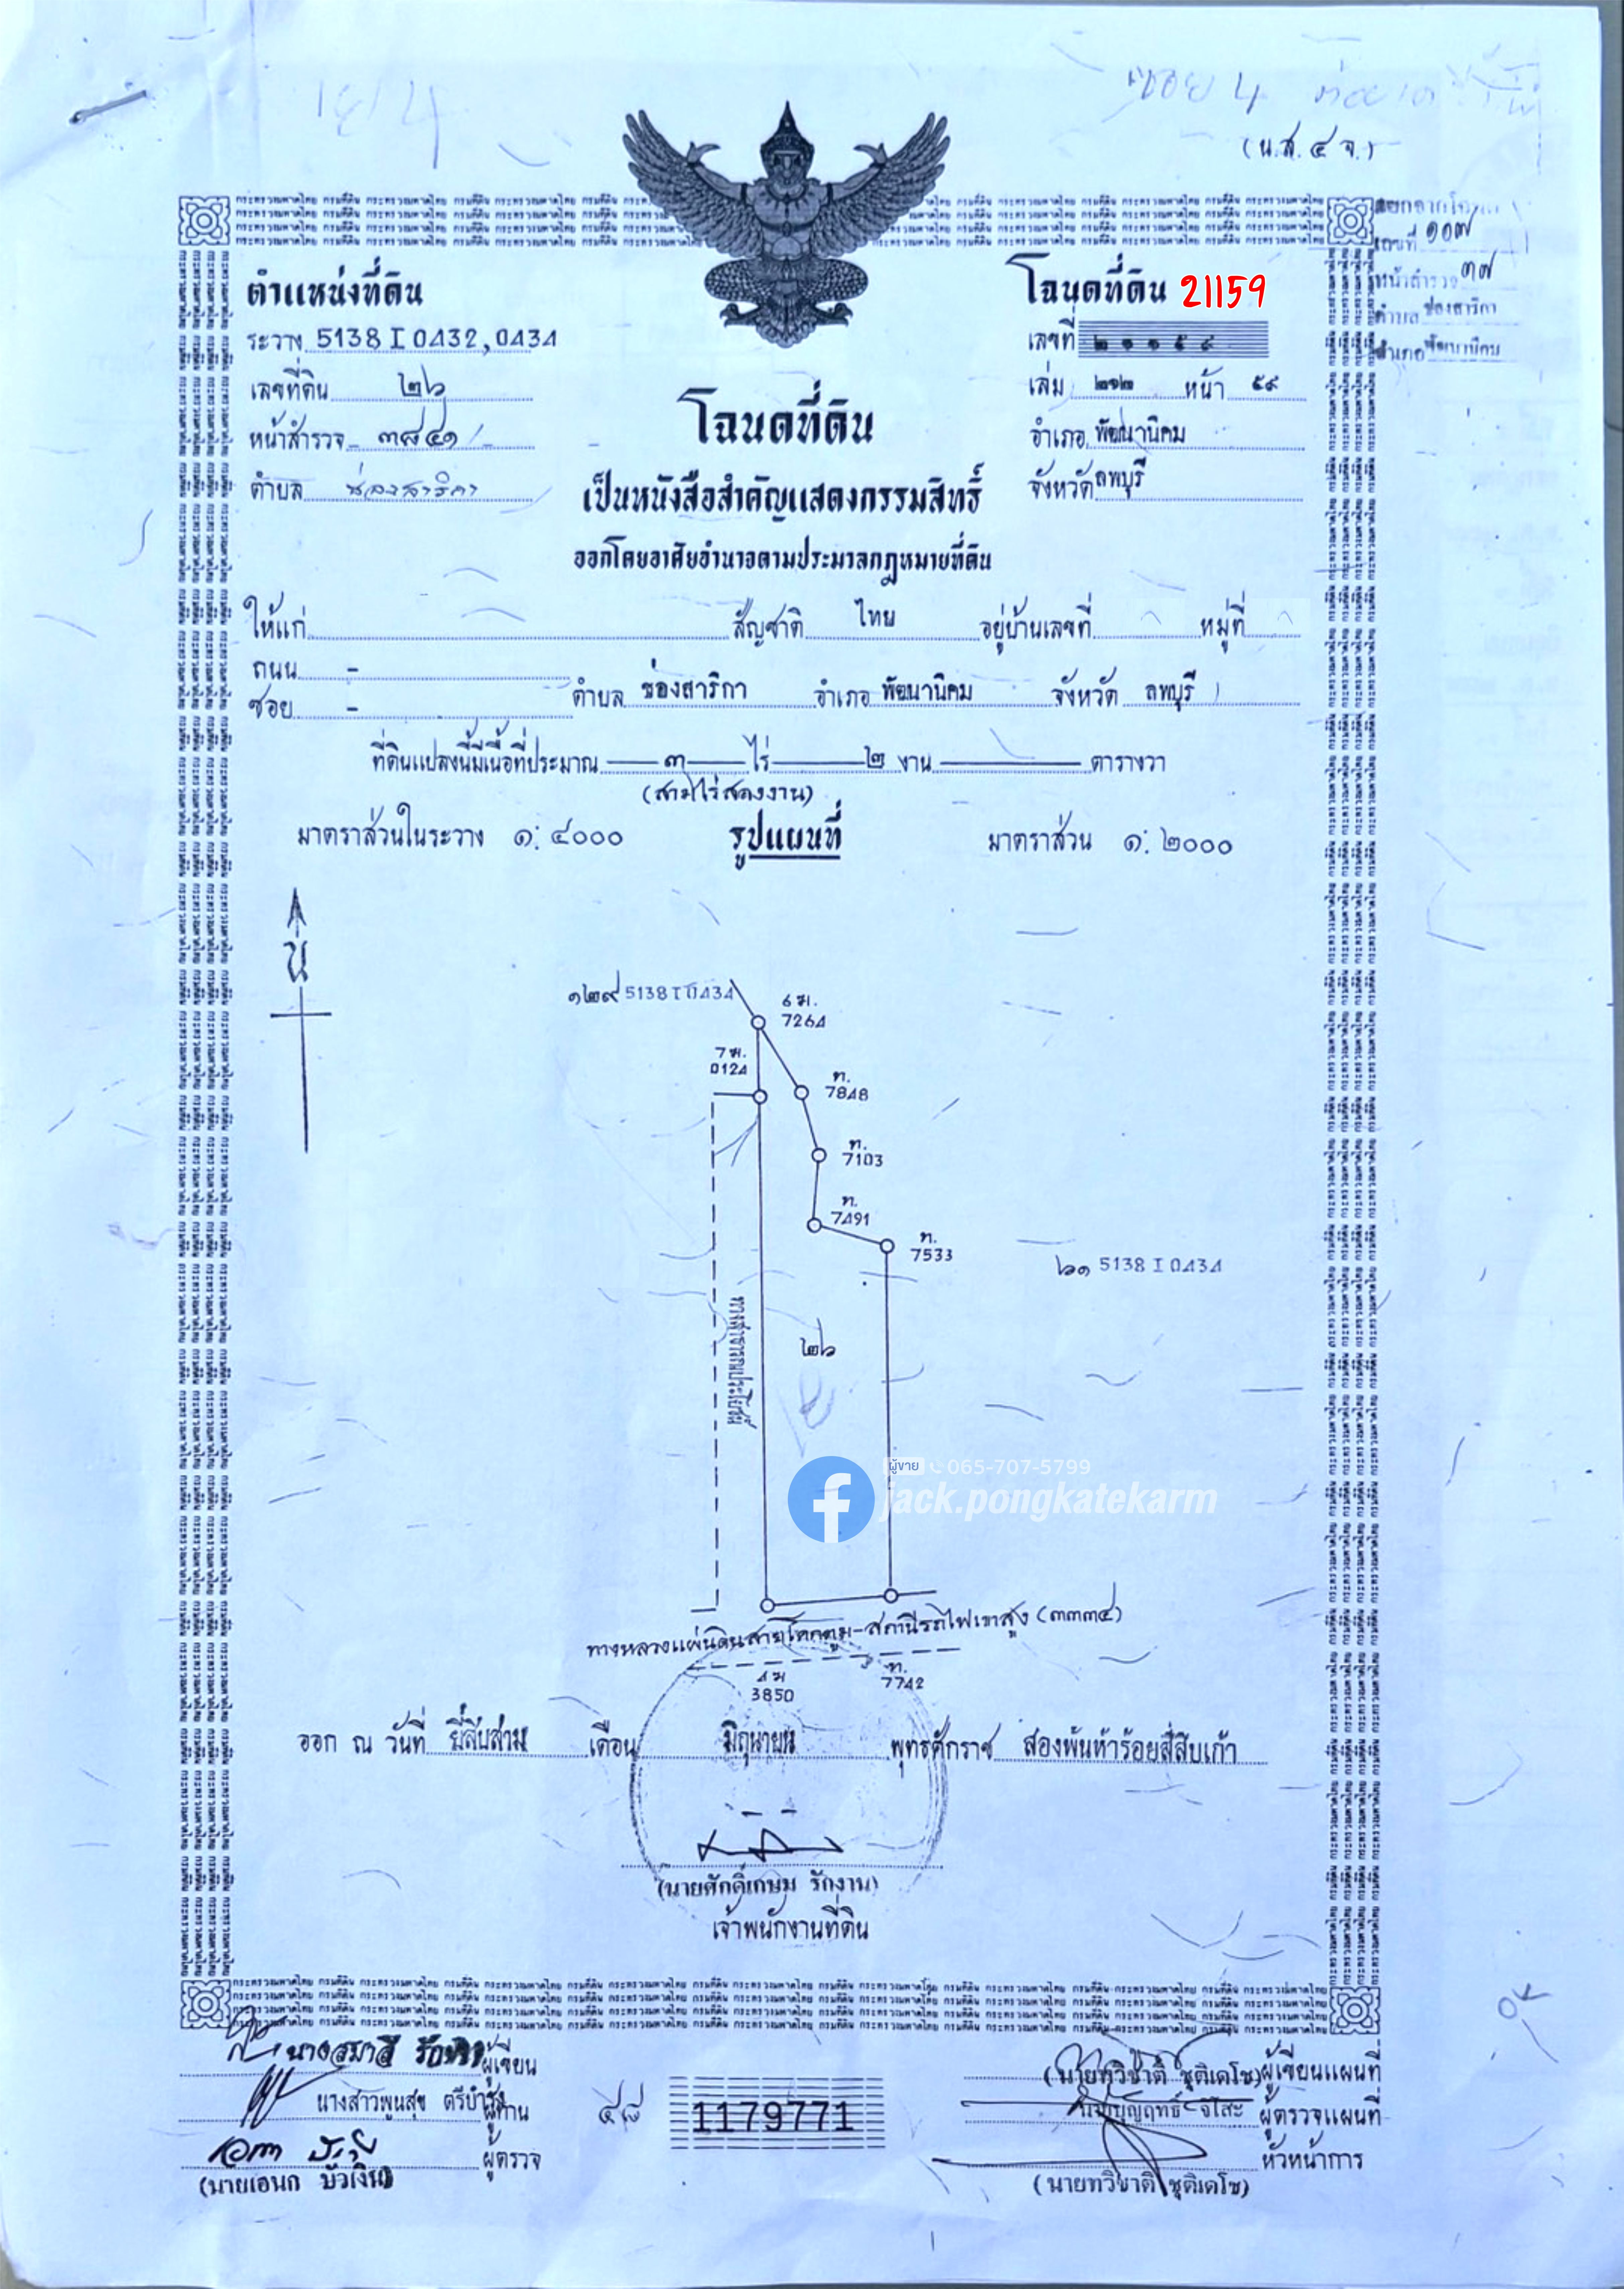 (น.ส. ๔ จ.)
เลขที่ ๑๐๗
หน้าสำรวจ ๓๗
ตำบล ช่องสาริกา
อำเภอ พัฒนานิคม
ตำแหน่งที่ดิน
ระวาง 5138 I 0432,0434
เลขที่ดิน ๒๖
หน้าสำรวจ ๓๘๔๑
ตำบล ช่องสาริกา
โฉนดที่ดิน 21159
เลขที่ ๒๑๑๕๙
เล่ม ๒๑๒ หน้า ๕๙
อำเภอ พัฒนานิคม
จังหวัด ลพบุรี
โฉนดที่ดิน
เป็นหนังสือสำคัญแสดงกรรมสิทธิ์
ออกโดยอาศัยอำนาจตามประมวลกฎหมายที่ดิน
ให้แก่ สัญชาติ ไทย อยู่บ้านเลขที่ หมู่ที่
ถนน -
ซอย - ตำบล ช่องสาริกา อำเภอ พัฒนานิคม จังหวัด ลพบุรี
ที่ดินแปลงนี้มีเนื้อที่ประมาณ ๓ ไร่ ๒ งาน ตารางวา
(สามไร่สองงาน)
มาตราส่วนในระวาง ๑: ๔๐๐๐ รูปแผนที่ มาตราส่วน ๑: ๒๐๐๐
น
๑๒๙ 5138 I 0434
6 ฆ.
7264
7 ฆ.
0124
ท.
7848
ท.
7103
ท.
7491
ท.
7533
๖๑ 5138 I 0434
ทางสาธารณประโยชน์
๒๖
ผู้ขาย 065-707-5799
jack.pongkatekarm
ทางหลวงแผ่นดินสายโคกตูม-สถานีรถไฟเขาสูง (๓๓๓๔)
4 ฆ
3850
ท.
7742
ออก ณ วันที่ ยี่สิบสาม เดือน มิถุนายน พุทธศักราช สองพันห้าร้อยสี่สิบเก้า
(นายศักดิ์เกษม รักงาน)
เจ้าพนักงานที่ดิน
ผู้เขียน
นางสาวพูนสุข ตรีบำรุง ผู้ทาน
ผู้ตรวจ
(นายเอนก บัวเงิน)
๔๘
1179771
(นายทวีชาติ ชุติเดโช) ผู้เขียนแผนที่
ผู้ตรวจแผนที่
หัวหน้าการ
(นายทวีชาติ ชุติเดโช)